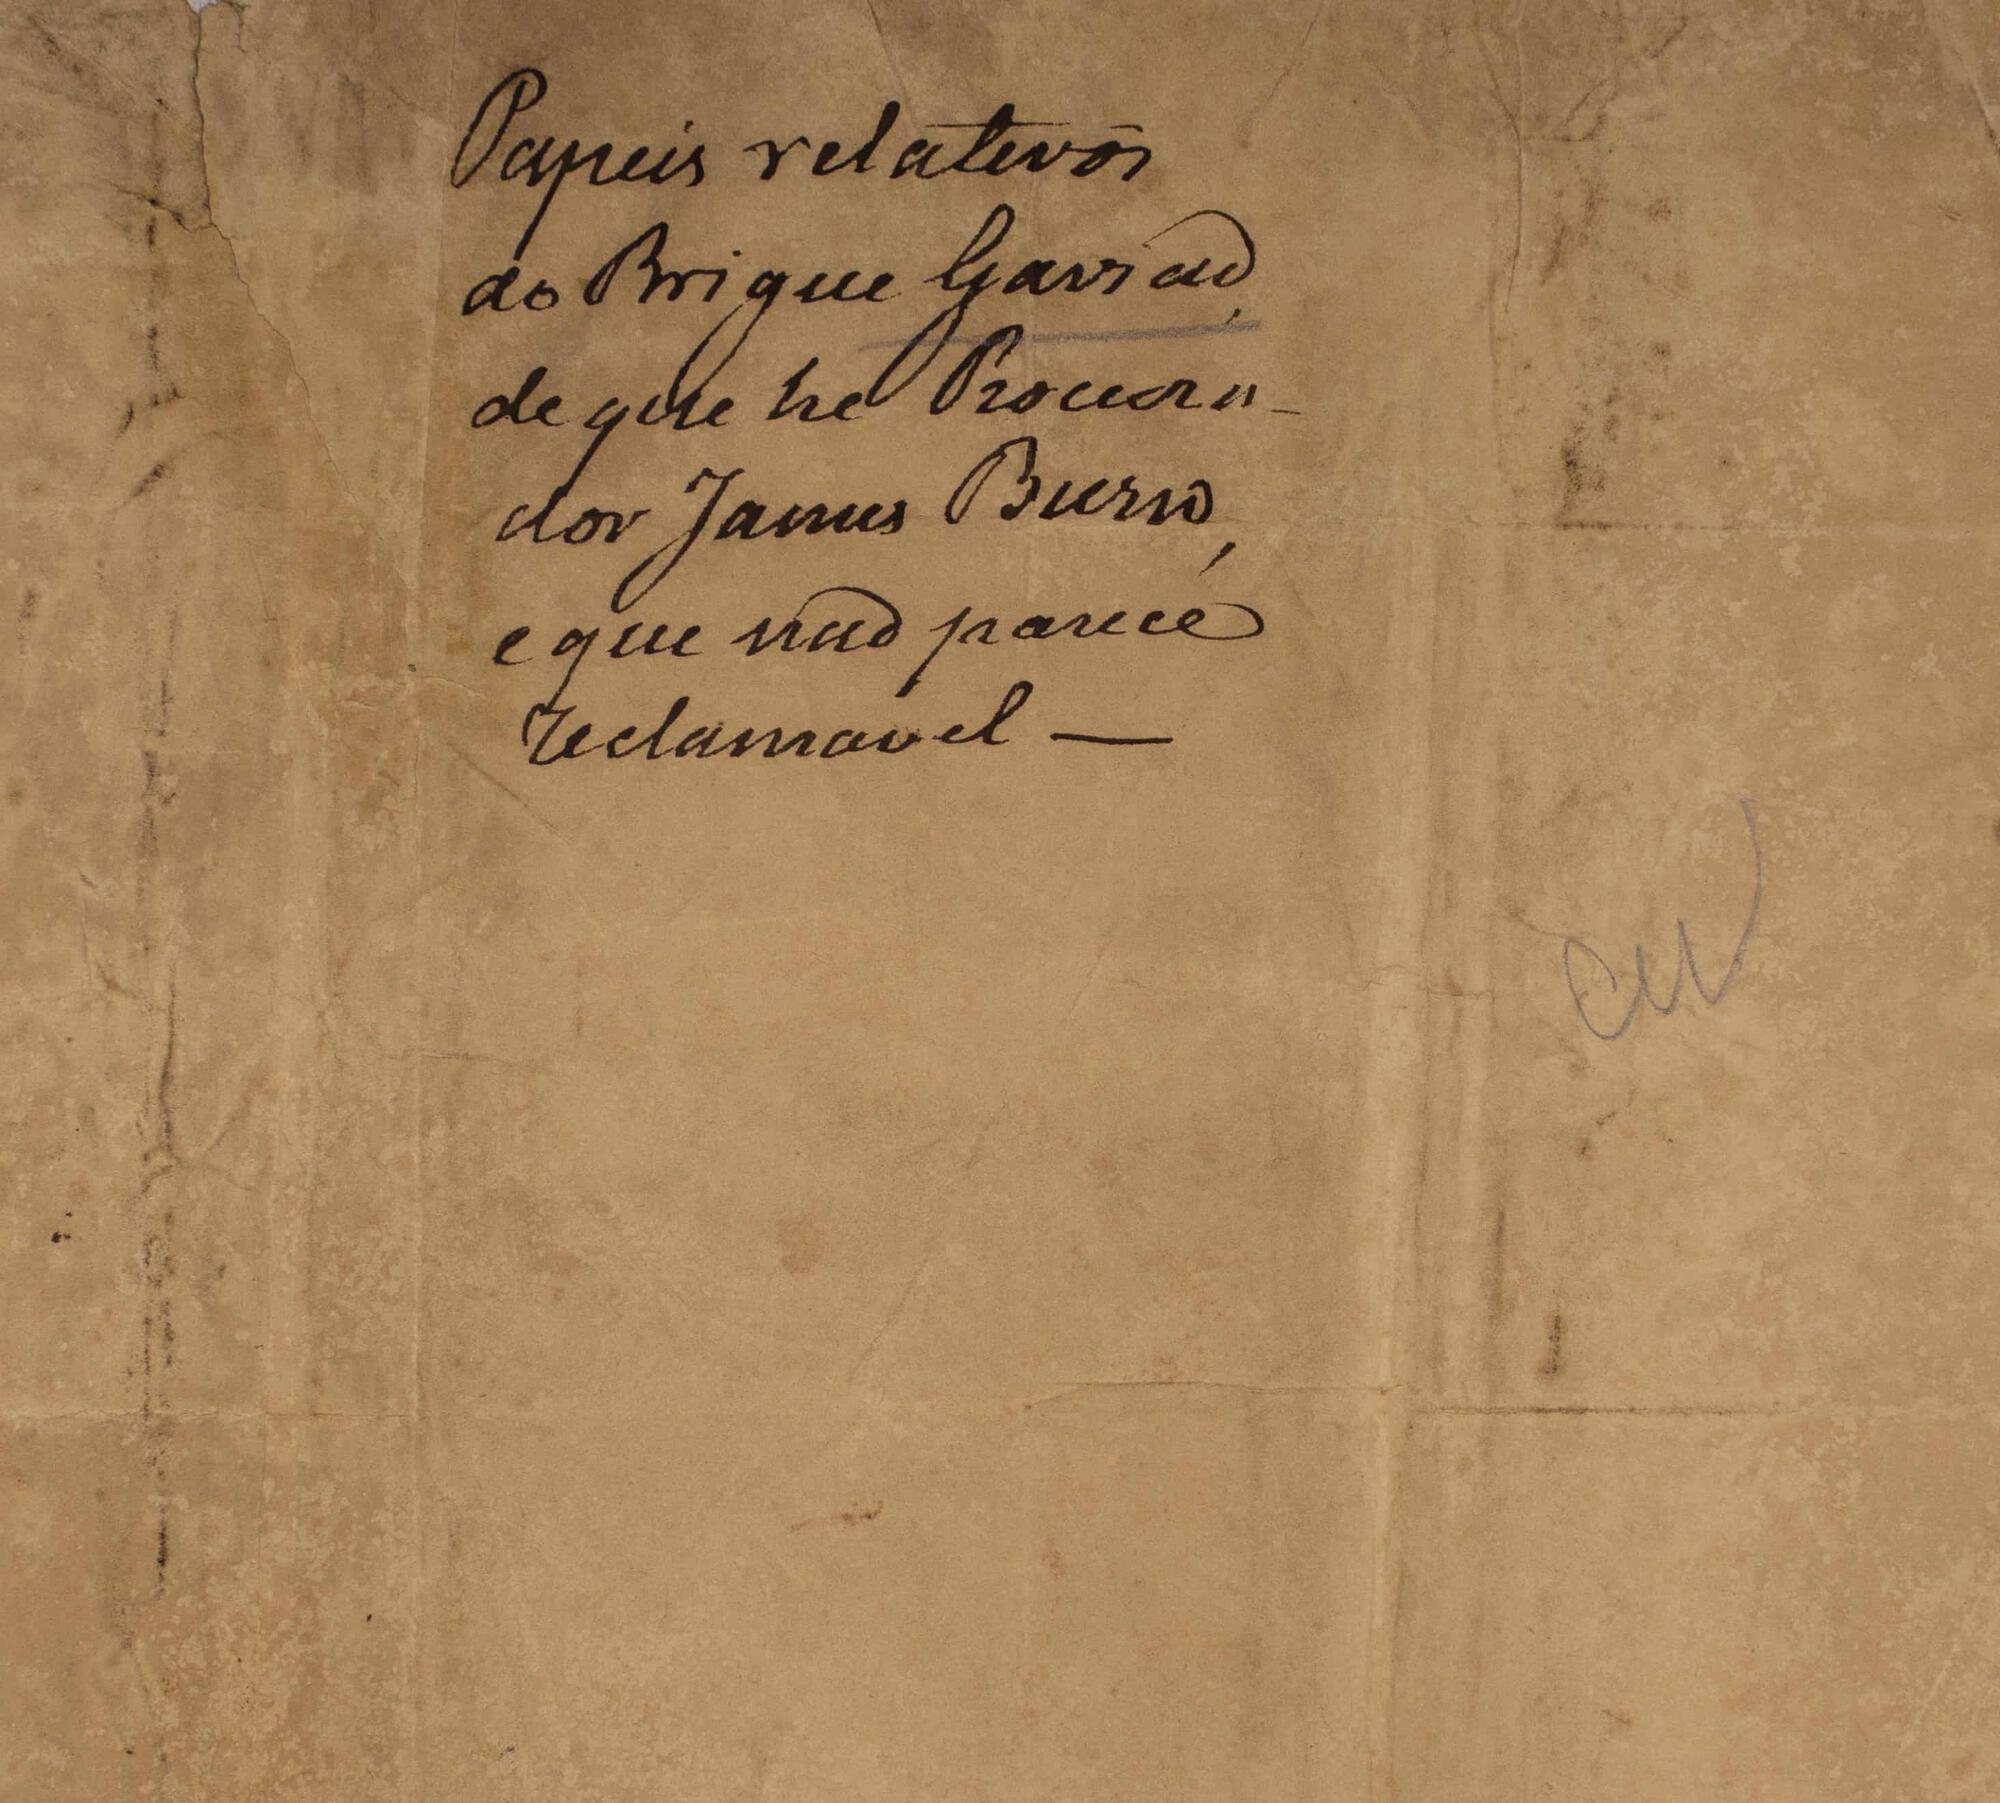 Papeis relativos
do Brigue Gavião,
de que he Procura-
dor James Burno,
e que não parece
reclamavel —